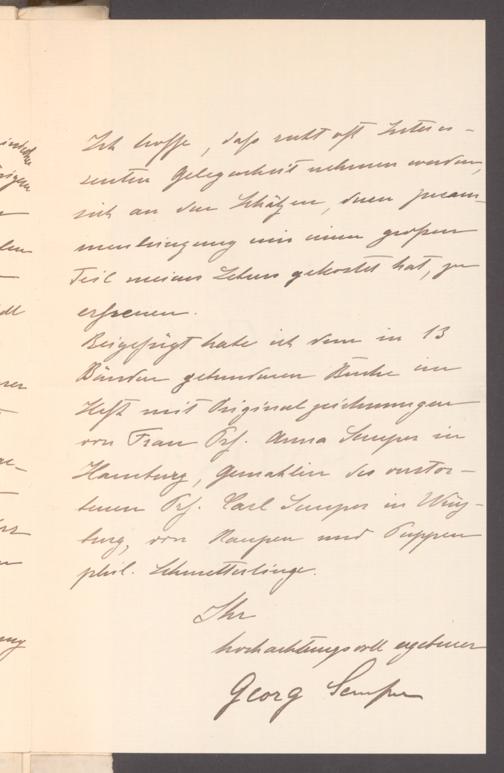 Ich hoffe, daß recht oft Interes-
senten Gelegenheit nehmen werden,
sich an den Schätzen, deren Zusam-
menbringung mir einen großen
Teil meines Lebens gekostet hat, zu
erfreuen.
Beigefügt habe ich dem in 13
Bänden gebundenen Buche ein
Heft mit Originalzeichnungen
von Frau Prf. Anna Semper in
Hamburg, Gemahlin des verstor-
benen Prf. Carl Semper in Würz-
burg, von Raupen und Puppen
phil. Schmetterlinge.
Ihr
hochachtungsvoll ergebener
Georg Semper